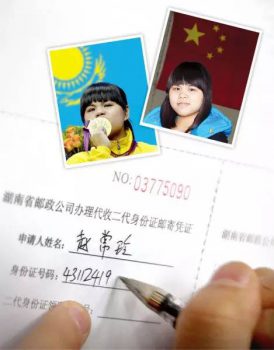 NO:03775090
湖南省邮政公司办理代收二代身份证邮寄凭证
申请人姓名: 赵常玲
身份证号码: 43112419
二代身份证领 号:
湖南省邮政公
申请人姓
身份证号
二代身